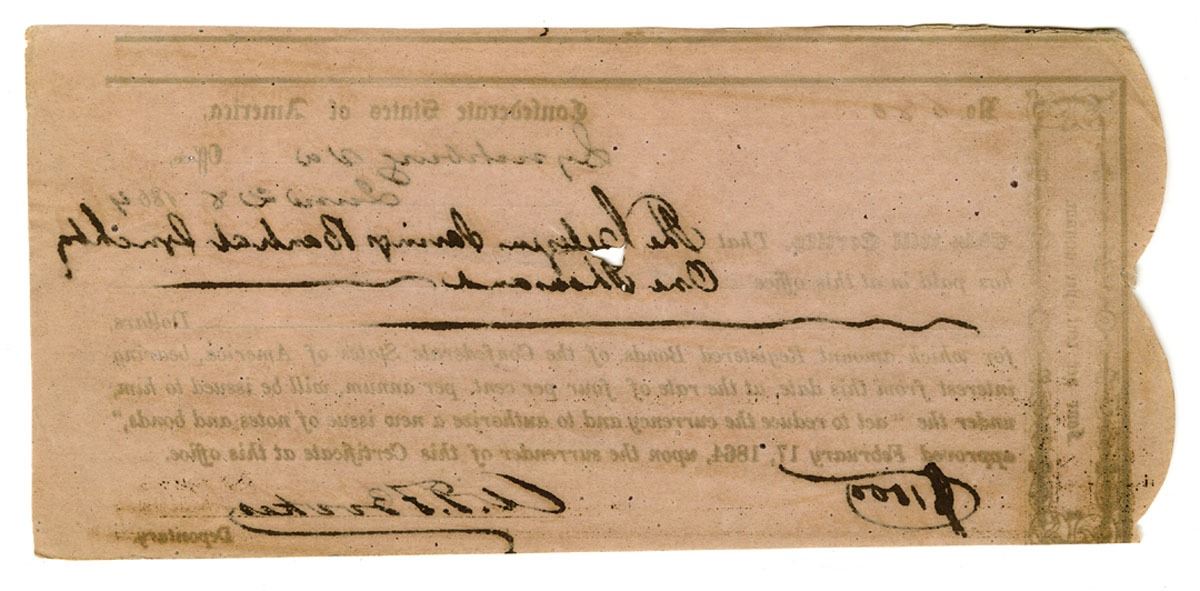 No 680
Confederate States of America,
Lynchburg Va Office,
1864
This will Certify, That The Savings Bank at Lynchbg
has paid in at this office One Thousand
Dollars
for which amount Registered Bonds of the Confederate States of America, bearing
interest from this date, at the rate of four per cent. per annum, will be issued to him,
under the "act to reduce the currency and to authorize a new issue of notes and bonds,"
approved February 17, 1864, upon the surrender of this Certificate at this office.
$1000
Depositary.
Four Per Cent